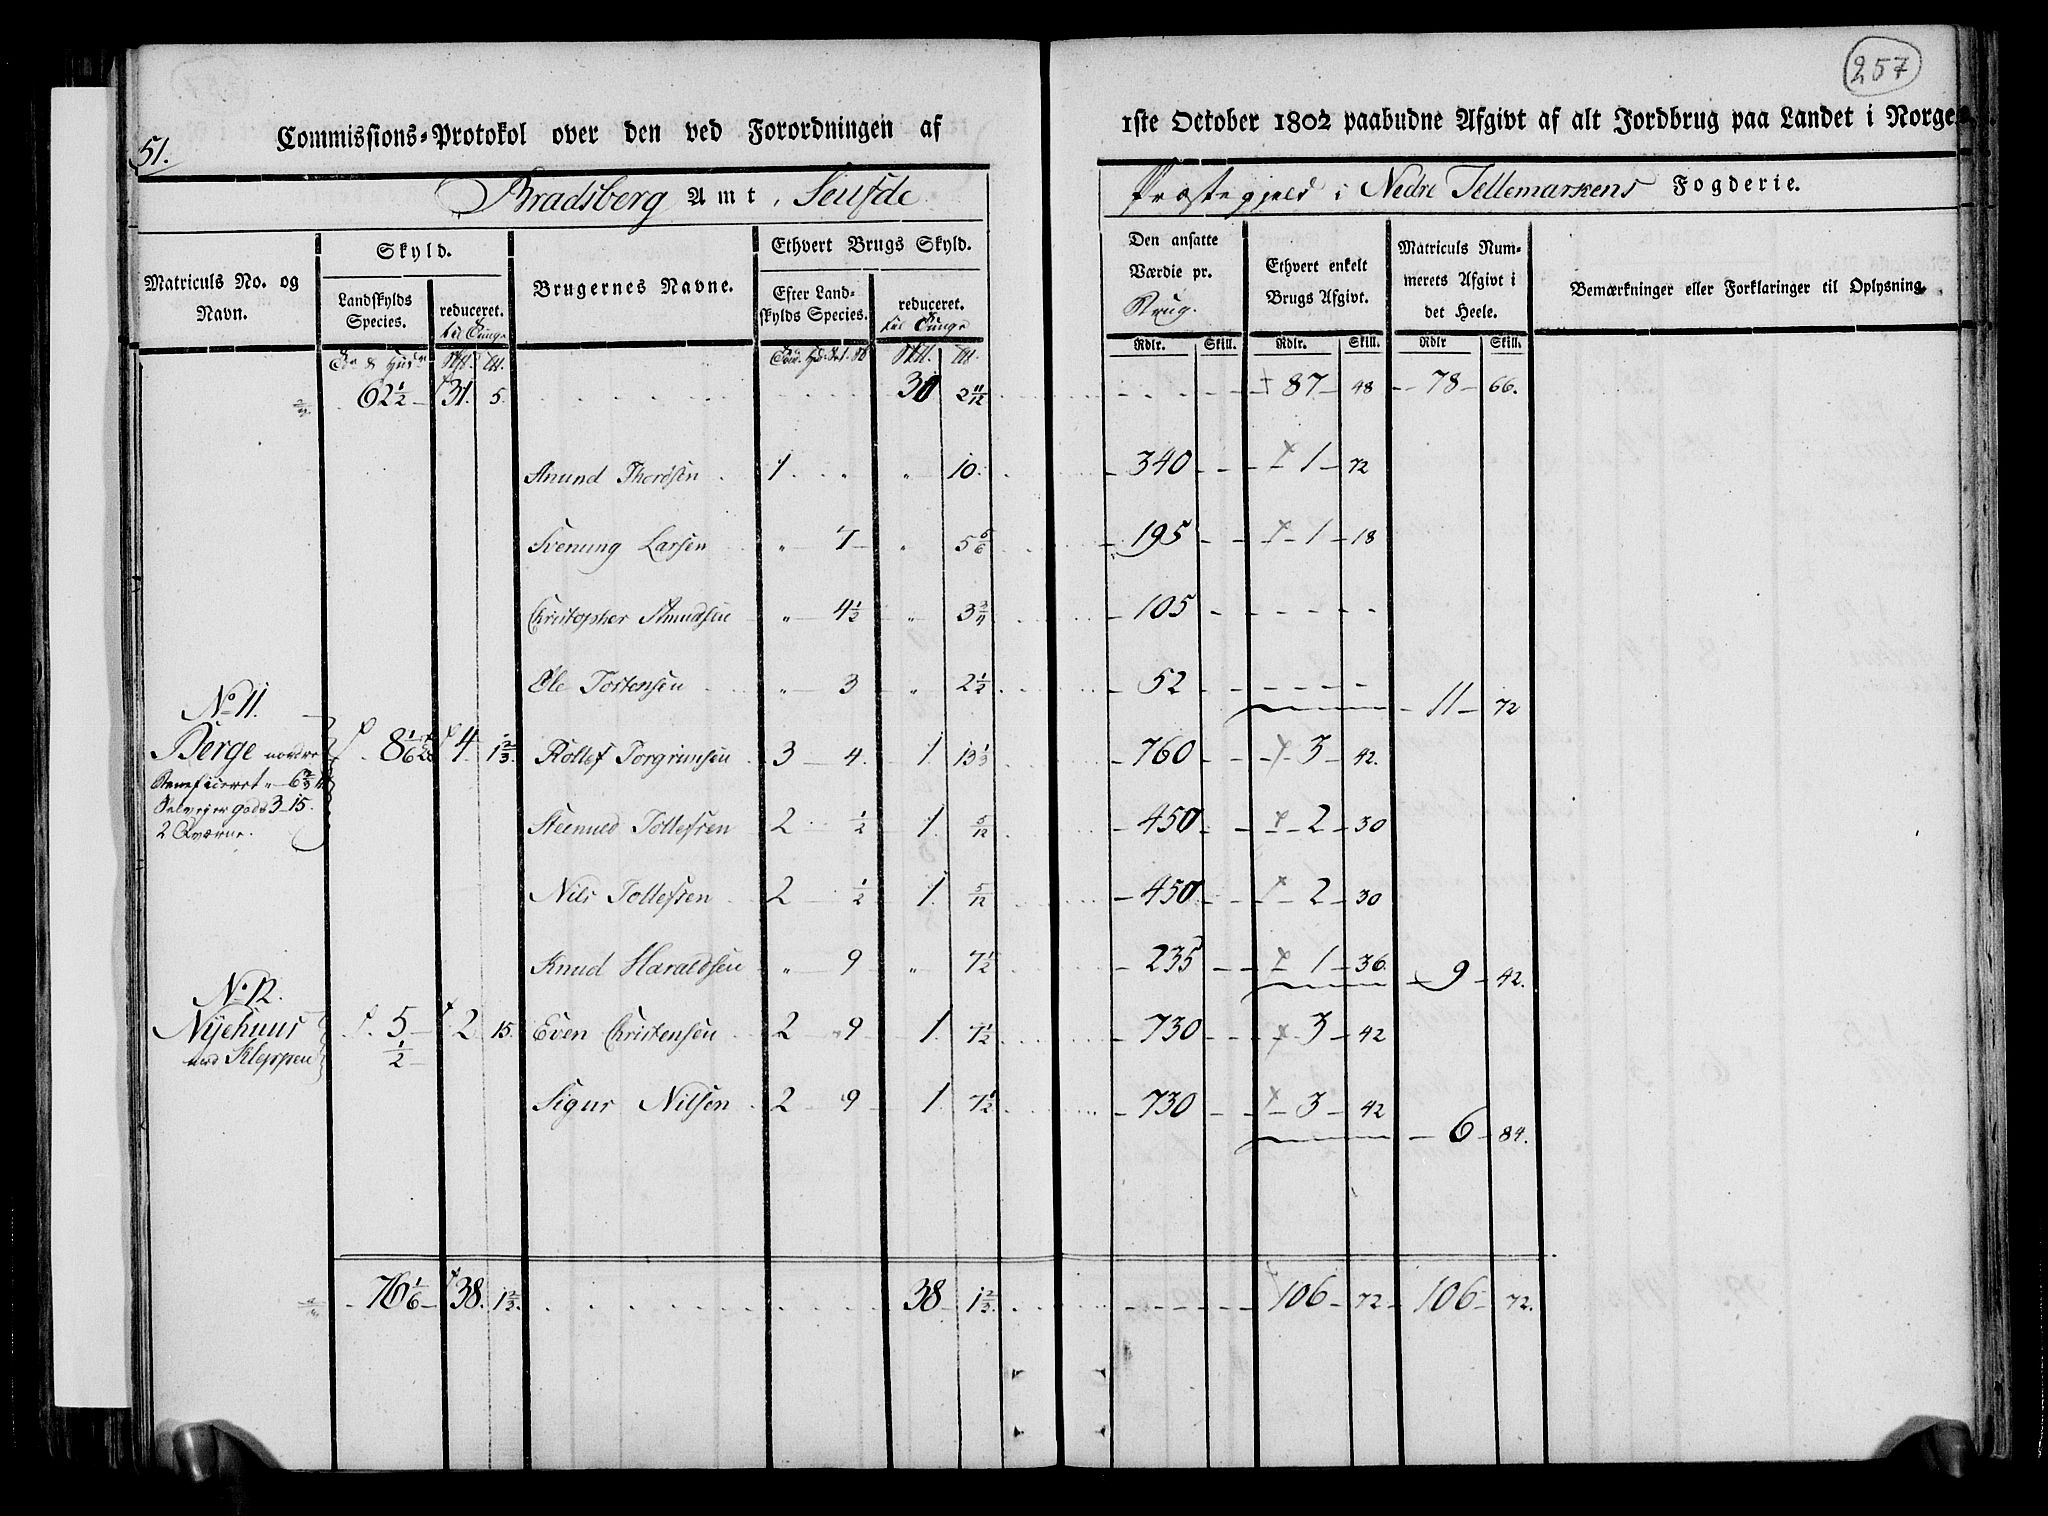 257
51.
Commissions-Protokol over den ved Forordningen af 1ste October 1802 paabudne Afgivt af alt Jordbrug paa Landet i Norge.
Bradsberg Amt, Seufde Præstegjeld i Nedre Tellemarkens Fogderie.
Matriculs No. og Navn.
Skyld.
Landskylds Species.
reduceret. til Tunge
Brugernes Navne.
Ethvert Brugs Skyld.
Efter Landskylds Species.
reduceret. til Tunge
Den ansatte Værdie pr. Brug.
Ethvert enkelt Brugs Afgivt.
Matriculs Nummerets Afgivt i det Heele.
Bemærkninger eller Forklaringer til Oplysning.
Rdlr. Skill. Rdlr. Skill. Rdlr Skill.
62 1/2 31. 5. 30 2 11/12 87 48 78 66.
Anund Thordsen 1 " " 10. 340 1 72
Svenung Larsen " 7 " 5 5/6 195 1 18
Christopher Amundsen " 4 1/2 " 3 3/4 105
Ole Tostensen " 3 " 2 1/2 52 11 72
No 11.
Berge nordre 8 1/6 4 1 2/3 Rollef Torgrimsen 3 4. 1 13 1/3 760 3 42.
Beneficeret " 6 2/3
Selvejergods 3 15.
2 Qværne.
Steenud Tollefsen 2 1/2 1 5/12 450 2 30
Nils Tollefsen 2 1/2 1. 5/12 450 2 30
Knud Haraldsen " 9 " 7 1/2 235 1 36. 9 42.
No 12.
Nyehuus 5 1/2 2 15. Even Christensen 2 9 1 7 1/2 730 3 42
med Kleppen
Sigur Nilsen 2 9 1. 7 1/2 730 3 42 6 84.
76 1/6 38. 1 2/3 38 1 2/3 106 72 106 72.